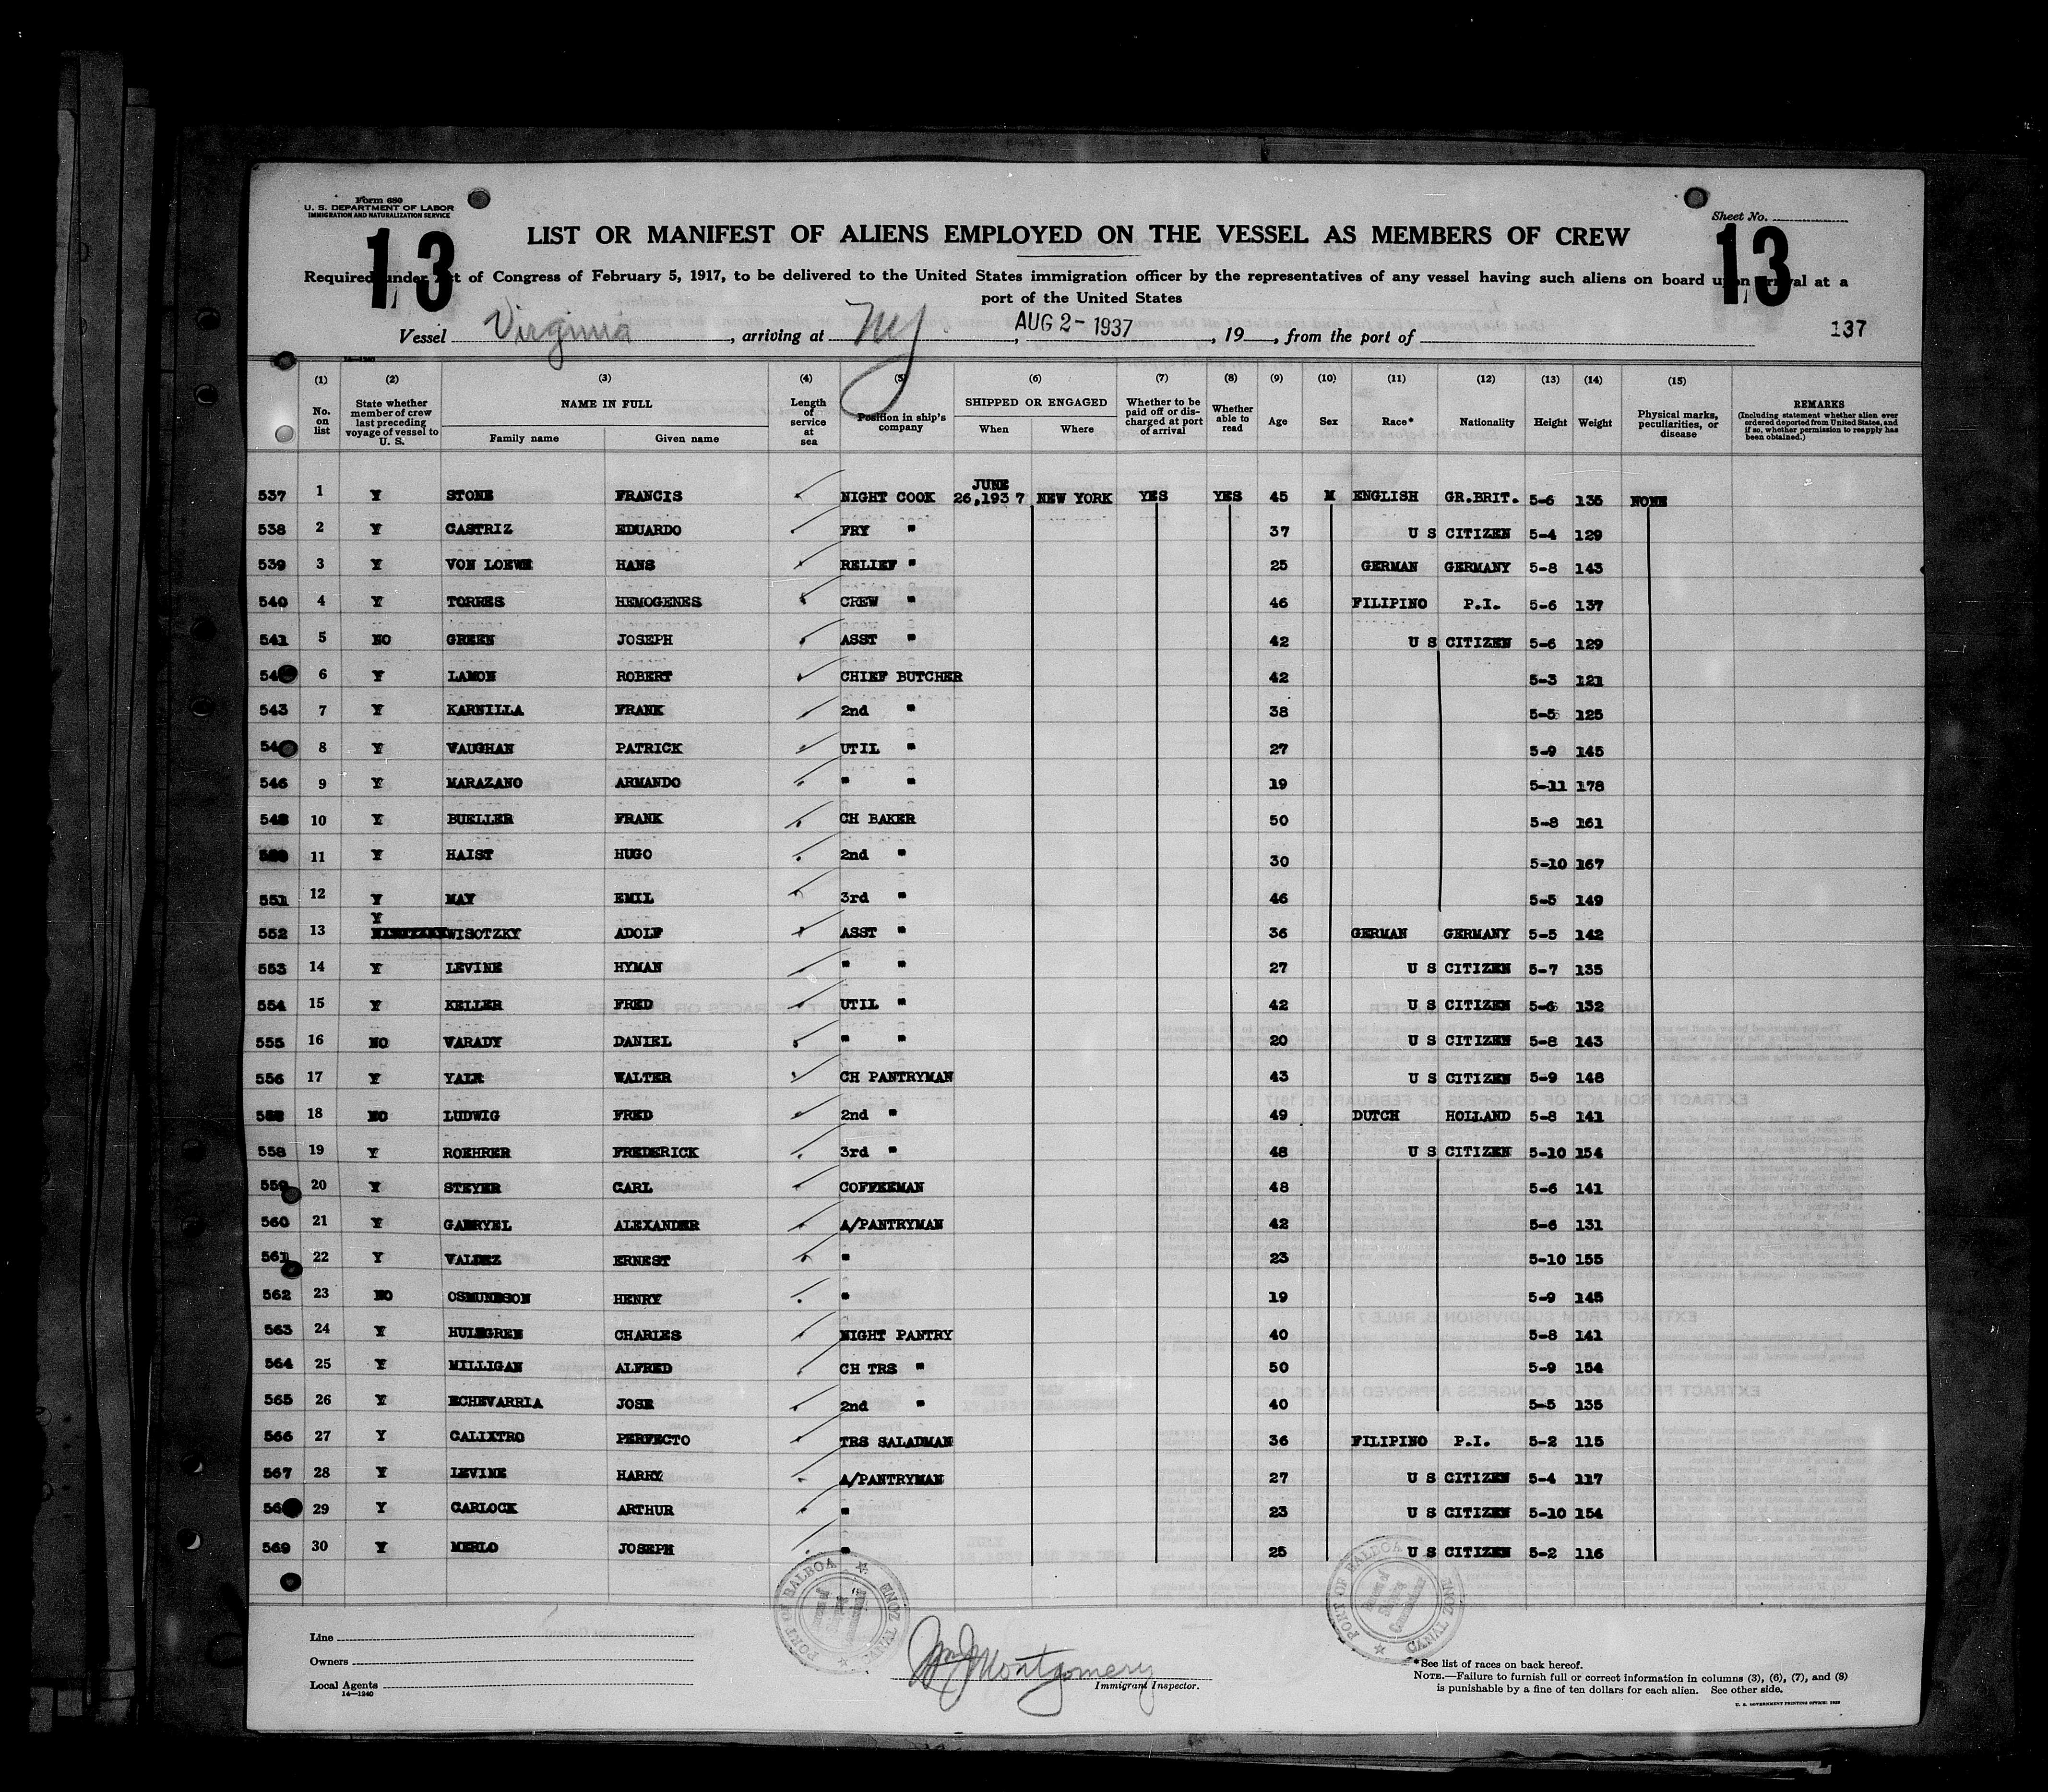 Form 680
U. S. DEPARTMENT OF LABOR
IMMIGRATION AND NATURALIZATION SERVICE
Sheet No.
13
13
LIST OR MANIFEST OF ALIENS EMPLOYED ON THE VESSEL AS MEMBERS OF CREW
Required under Act of Congress of February 5, 1917, to be delivered to the United States immigration officer by the representatives of any vessel having such aliens on board upon arrival at a
port of the United States
Vessel Virginia, arriving at NY, AUG 2 - 1937, 19, from the port of 137
14-1240
(1) (2) (3) (4) (5) (6) (7) (8) (9) (10) (11) (12) (13) (14) (15)
No. on list State whether member of crew last preceding voyage of vessel to U. S. NAME IN FULL Family name Given name Length of service at sea Position in ship's company SHIPPED OR ENGAGED When Where Whether to be paid off or discharged at port of arrival Whether able to read Age Sex Race* Nationality Height Weight Physical marks, peculiarities, or disease REMARKS (Including statement whether alien ever ordered deported from United States, and if so, whether permission to reapply has been obtained.)
537 1 Y STONE FRANCIS NIGHT COOK JUNE 26,1937 NEW YORK YES YES 45 M ENGLISH GR.BRIT. 5-6 135 NONE
538 2 Y CASTRIZ EDUARDO FRY " 37 U S CITIZEN 5-4 129
539 3 Y VON LOEWE HANS RELIEF " 25 GERMAN GERMANY 5-8 143
540 4 Y TORRES HEMOGENES CREW " 46 FILIPINO P.I. 5-6 137
541 5 NO GREEN JOSEPH ASST " 42 U S CITIZEN 5-6 129
6 Y LAMON ROBERT CHIEF BUTCHER 42 5-3 121
543 7 Y KARNILLA FRANK 2nd " 38 5-5 125
8 Y VAUGHAN PATRICK UTIL " 27 5-9 145
546 9 Y MARAZANO ARMANDO " " 19 5-11 178
548 10 Y BUELLER FRANK CH BAKER 50 5-8 161
11 Y HAIST HUGO 2nd " 30 5-10 167
551 12 Y MAY EMIL 3rd " 46 5-5 149
552 13 Y WISOTZKY ADOLF ASST " 36 GERMAN GERMANY 5-5 142
553 14 Y LEVINE HYMAN " " 27 U S CITIZEN 5-7 135
554 15 Y KELLER FRED UTIL " 42 U S CITIZEN 5-6 132
555 16 NO VARADY DANIEL " " 20 U S CITIZEN 5-8 143
556 17 Y YAIR WALTER CH PANTRYMAN 43 U S CITIZEN 5-9 148
18 NO LUDWIG FRED 2nd " 49 DUTCH HOLLAND 5-8 141
558 19 Y ROEHRER FREDERICK 3rd " 48 U S CITIZEN 5-10 154
559 20 Y STEYER CARL COFFEEMAN 48 5-6 141
560 21 Y GABRYEL ALEXANDER A/PANTRYMAN 42 5-6 131
561 22 Y VALDEZ ERNEST " 23 5-10 155
562 23 NO OSMUNDSON HENRY " 19 5-9 145
563 24 Y HULSGREN CHARLES NIGHT PANTRY 40 5-8 141
564 25 Y MILLIGAN ALFRED CH TRS " 50 5-9 154
565 26 Y ECHEVARRIA JOSE 2nd " 40 5-5 135
566 27 Y CALIXTRO PERFECTO TRS SALADMAN 36 FILIPINO P.I. 5-2 115
567 28 Y LEVINE HARRY A/PANTRYMAN 27 U S CITIZEN 5-4 117
29 Y GARLOCK ARTHUR " 23 U S CITIZEN 5-10 154
569 30 Y MERLO JOSEPH " 25 U S CITIZEN 5-2 116
PORT OF BALBOA CANAL ZONE
PORT OF BALBOA CANAL ZONE
Line
Owners
Local Agents
14-1240
Wm J Montgomery
Immigrant Inspector.
*See list of races on back hereof.
NOTE.—Failure to furnish full or correct information in columns (3), (6), (7), and (8)
is punishable by a fine of ten dollars for each alien. See other side.
U. S. GOVERNMENT PRINTING OFFICE: